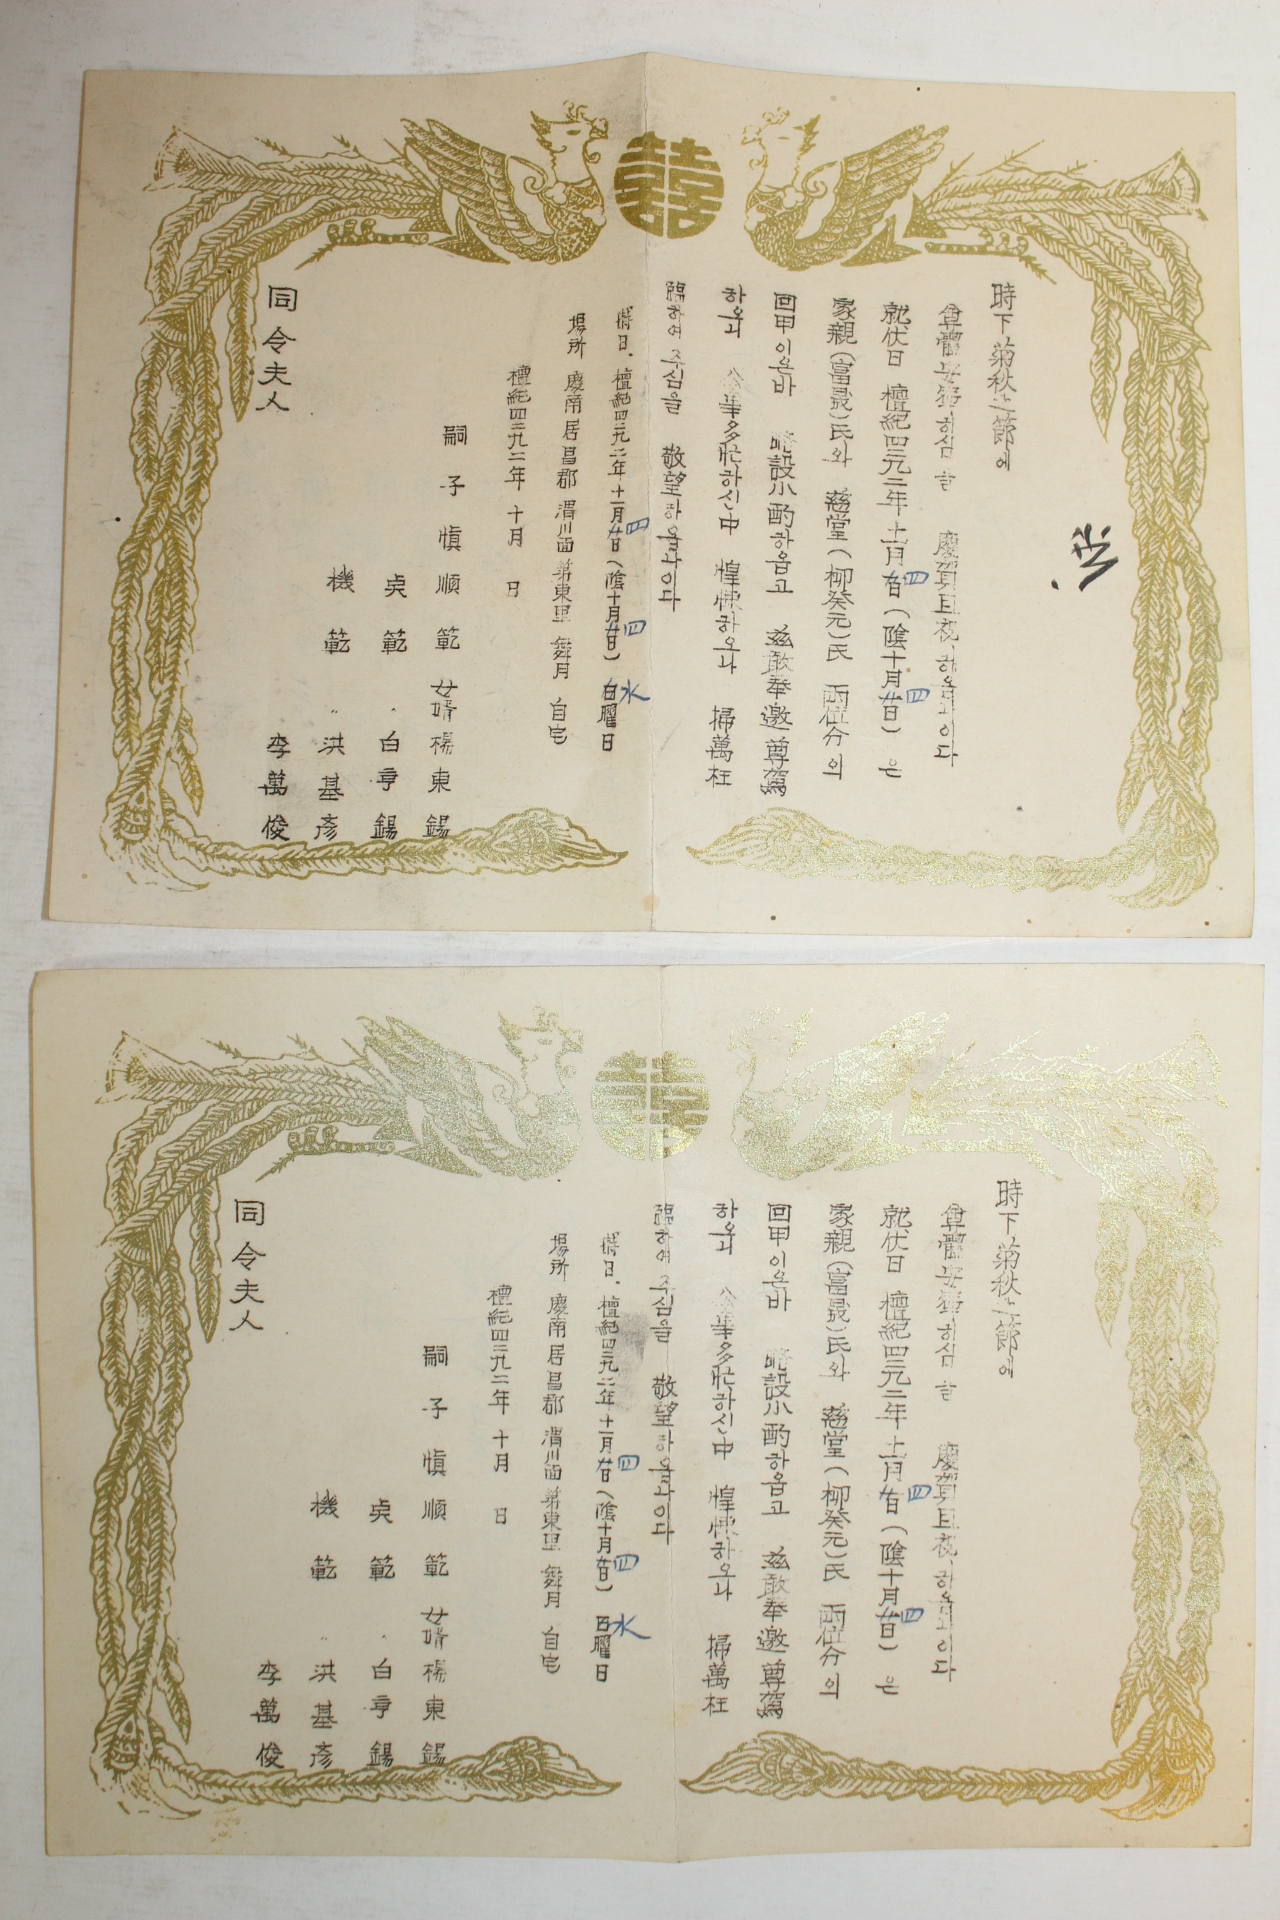 囍
時下菊秋之節에
尊體安寧하심을 慶賀且祝하옵나이다
就伏日 檀紀四二九二年 十一月 廿四日 (陰十月廿四日) 은
家親(富晟)氏와 慈堂(柳癸元)氏 兩位分의
回甲이온바 略設小酌하옵고 玆敢奉邀 尊駕
하오니 公私多忙하신中 惶悚하오나 掃萬枉
臨하여 주심을 敬望하옵나이다
日. 檀紀四二九二年 十一月廿四日 (陰十月廿四日) 水曜日
場所 慶南居昌郡 渭川面 第東里 舞月 自宅
檀紀四二九二年 十月 日
嗣子 愼順範 女婿 楊東錫
奌範 〃 白亨錫
機範 〃 洪基彦
李萬俊
同令夫人
囍
時下菊秋之節에
尊體安寧하심을 慶賀且祝하옵나이다
就伏日 檀紀四二九二年 十一月 廿四日 (陰十月廿四日) 은
家親(富晟)氏와 慈堂(柳癸元)氏 兩位分의
回甲이온바 略設小酌하옵고 玆敢奉邀 尊駕
하오니 公私多忙하신中 惶悚하오나 掃萬枉
臨하여 주심을 敬望하옵나이다
日. 檀紀四二九二年 十一月廿四日 (陰十月廿四日) 水曜日
場所 慶南居昌郡 渭川面 第東里 舞月 自宅
檀紀四二九二年 十月 日
嗣子 愼順範 女婿 楊東錫
奌範 〃 白亨錫
機範 〃 洪基彦
李萬俊
同令夫人